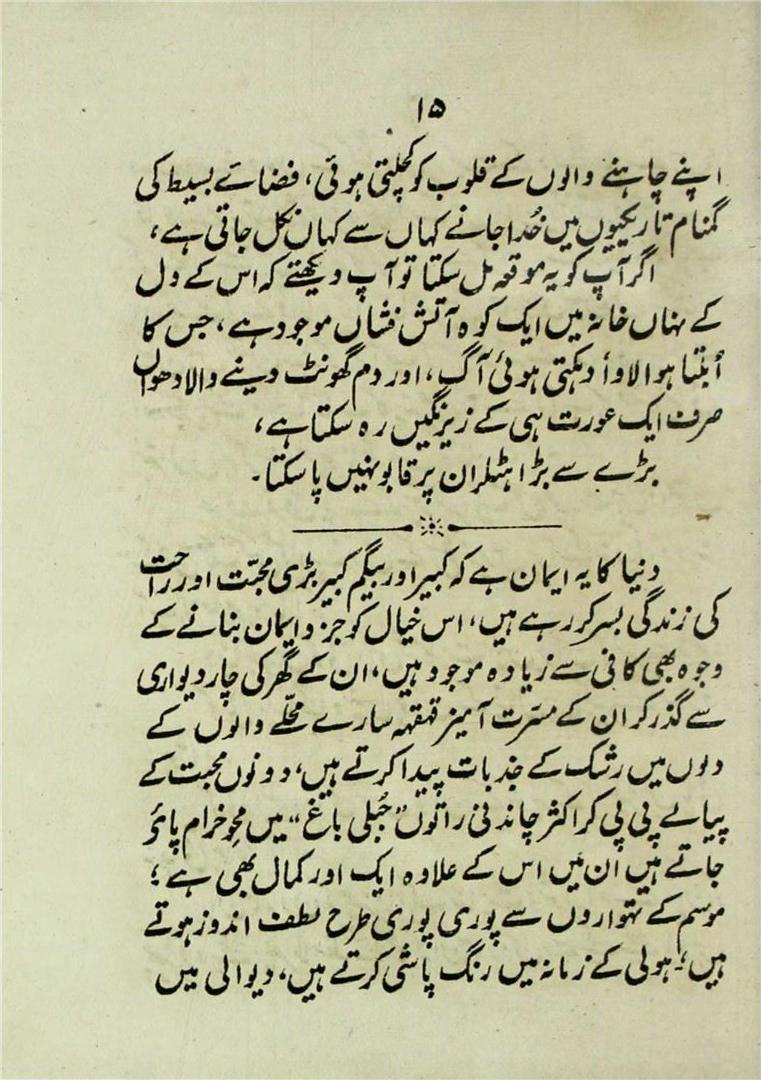 ۱۵
اپنے چاہنے والوں کے قلوب کو کچلتی ہوئی، فضائے بسیط کی
گمنام تاریکیوں میں خُدا جانے کہاں سے کہاں نکل جاتی ہے،
اگر آپ کو یہ موقعہ مل سکتا تو آپ دیکھتے کہ اس کے دل
کے نہاں خانہ میں ایک کوہ آتش فشاں موجود ہے، جس کا
اُبلتا ہوا لاوا دہکتی ہوئی آگ، اور دم گھونٹ دینے والا دھواں
صرف ایک عورت ہی کے زیرنگیں رہ سکتا ہے،
بڑے سے بڑا ہٹلر ان پر قابو نہیں پا سکتا۔
دنیا کا یہ ایمان ہے کہ کبیر اور بیگم کبیر بڑی محبّت اور راحت
کی زندگی بسر کر رہے ہیں، اس خیال کو جزو ایمان بنانے کے
وجوہ بھی کافی سے زیادہ موجود ہیں، ان کے گھر کی چار دیواری
سے گذر کر ان کے مسرّت آمیز قہقہہ سارے محلّے والوں کے
دلوں میں رشک کے جذبات پیدا کرتے ہیں، دونوں محبت کے
پیالے پی پی کر اکثر چاندنی راتوں "جُبلی باغ" میں محوِ خرام پائے
جاتے ہیں ان میں اس کے علاوہ ایک اور کمال بھی ہے؛
موسم کے تہواروں سے پوری پوری طرح لطف اندوز ہوتے
ہیں؛ ہولی کے زمانہ میں رنگ پاشی کرتے ہیں، دیوالی میں